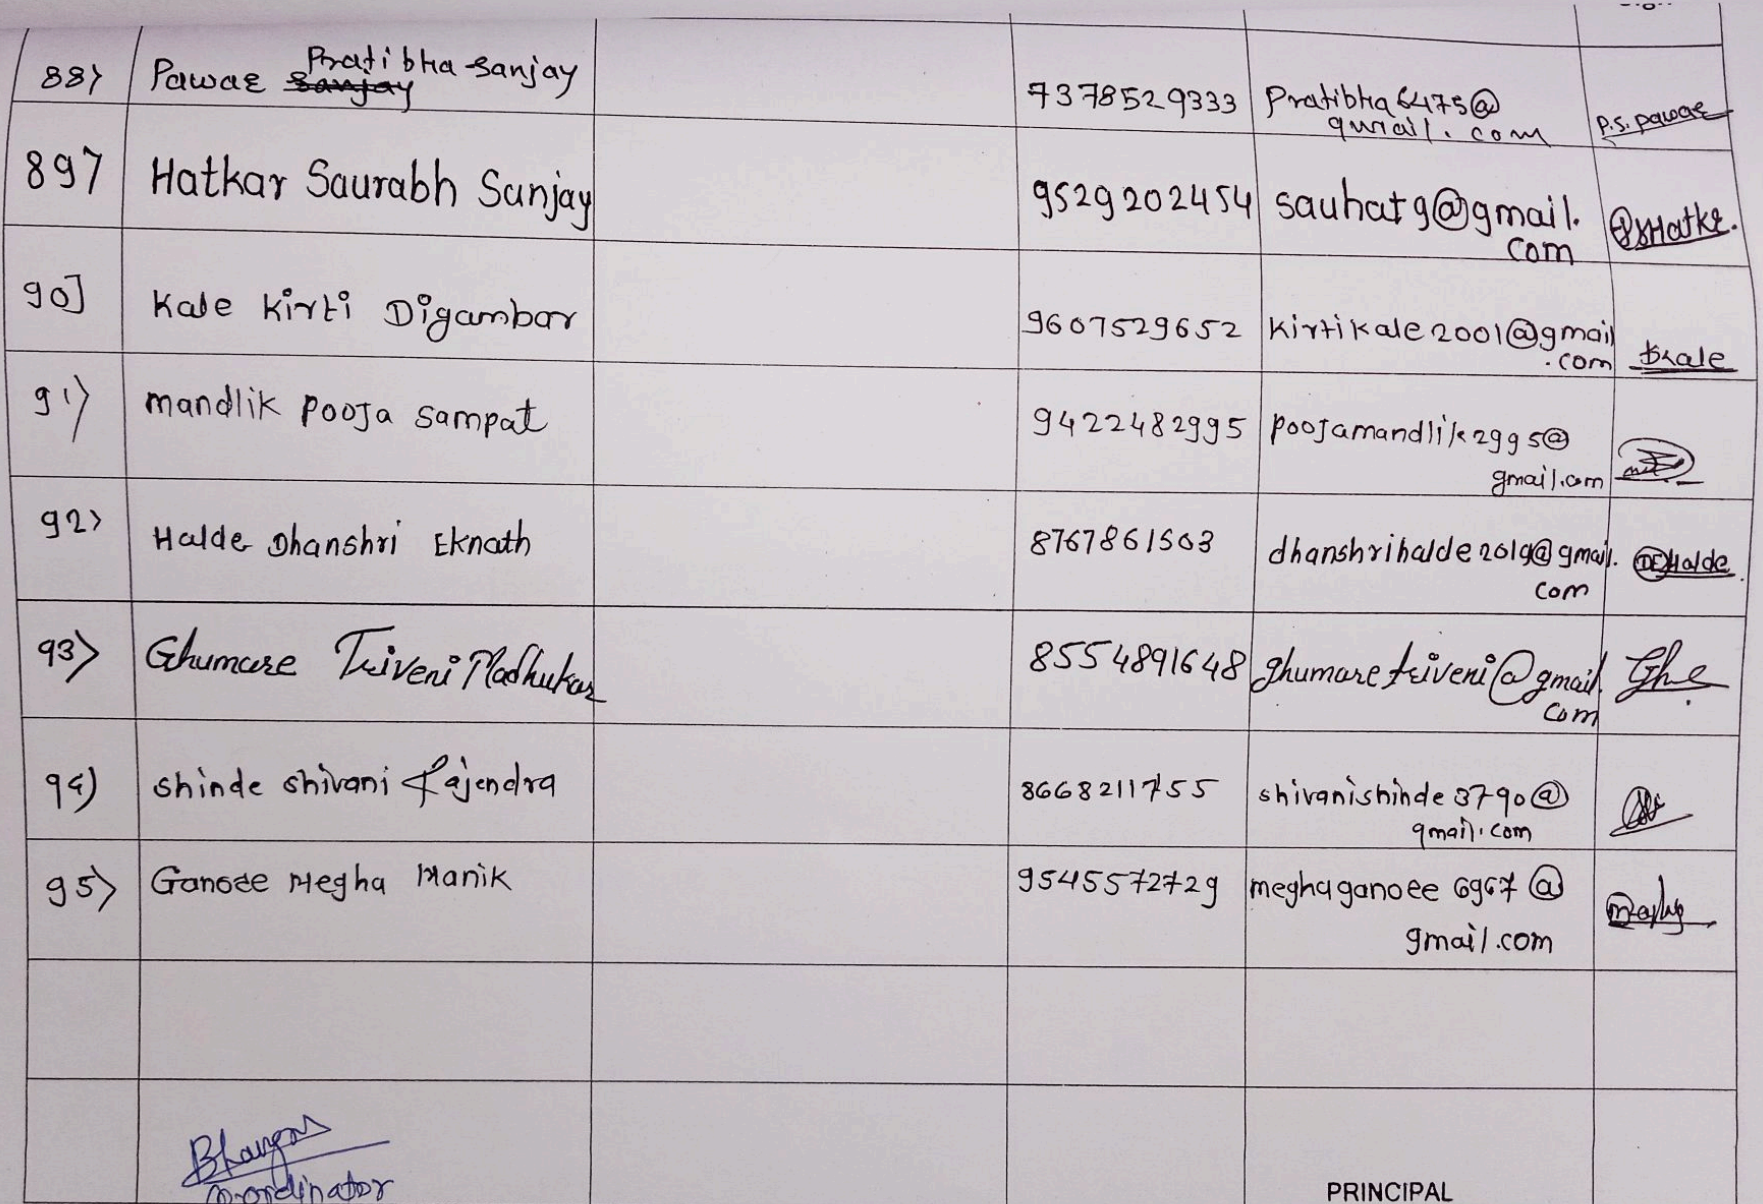 88) Pawar Pratibha Sanjay 7378529333 Pratibha6475@
gmail.com P.S. Pawar
89) Hatkar Saurabh Sanjay 9529202454 sauhatg@gmail.
com
90] Kale Kirti Digambar 9607529652 kirtikale2001@gmail
.com Kale
91) mandlik pooja sampat 9422482995 poojamandlik2995@
gmail.com
92) Halde Dhanshri Eknath 8767861503 dhanshrihalde2019@gmail.
com DEHalde
93) Ghumare Triveni Madhukar 8554891648 ghumaretriveni@gmail.
com Ghe
94) shinde shivani Rajendra 8668211755 shivanishinde3790@
gmail.com
95) Ganore Megha Manik 9545572729 meghaganore6967@
gmail.com
Co-ordinator
PRINCIPAL